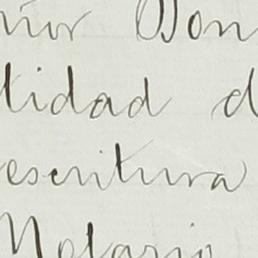 nor Don
tidad d
escritura
Notario